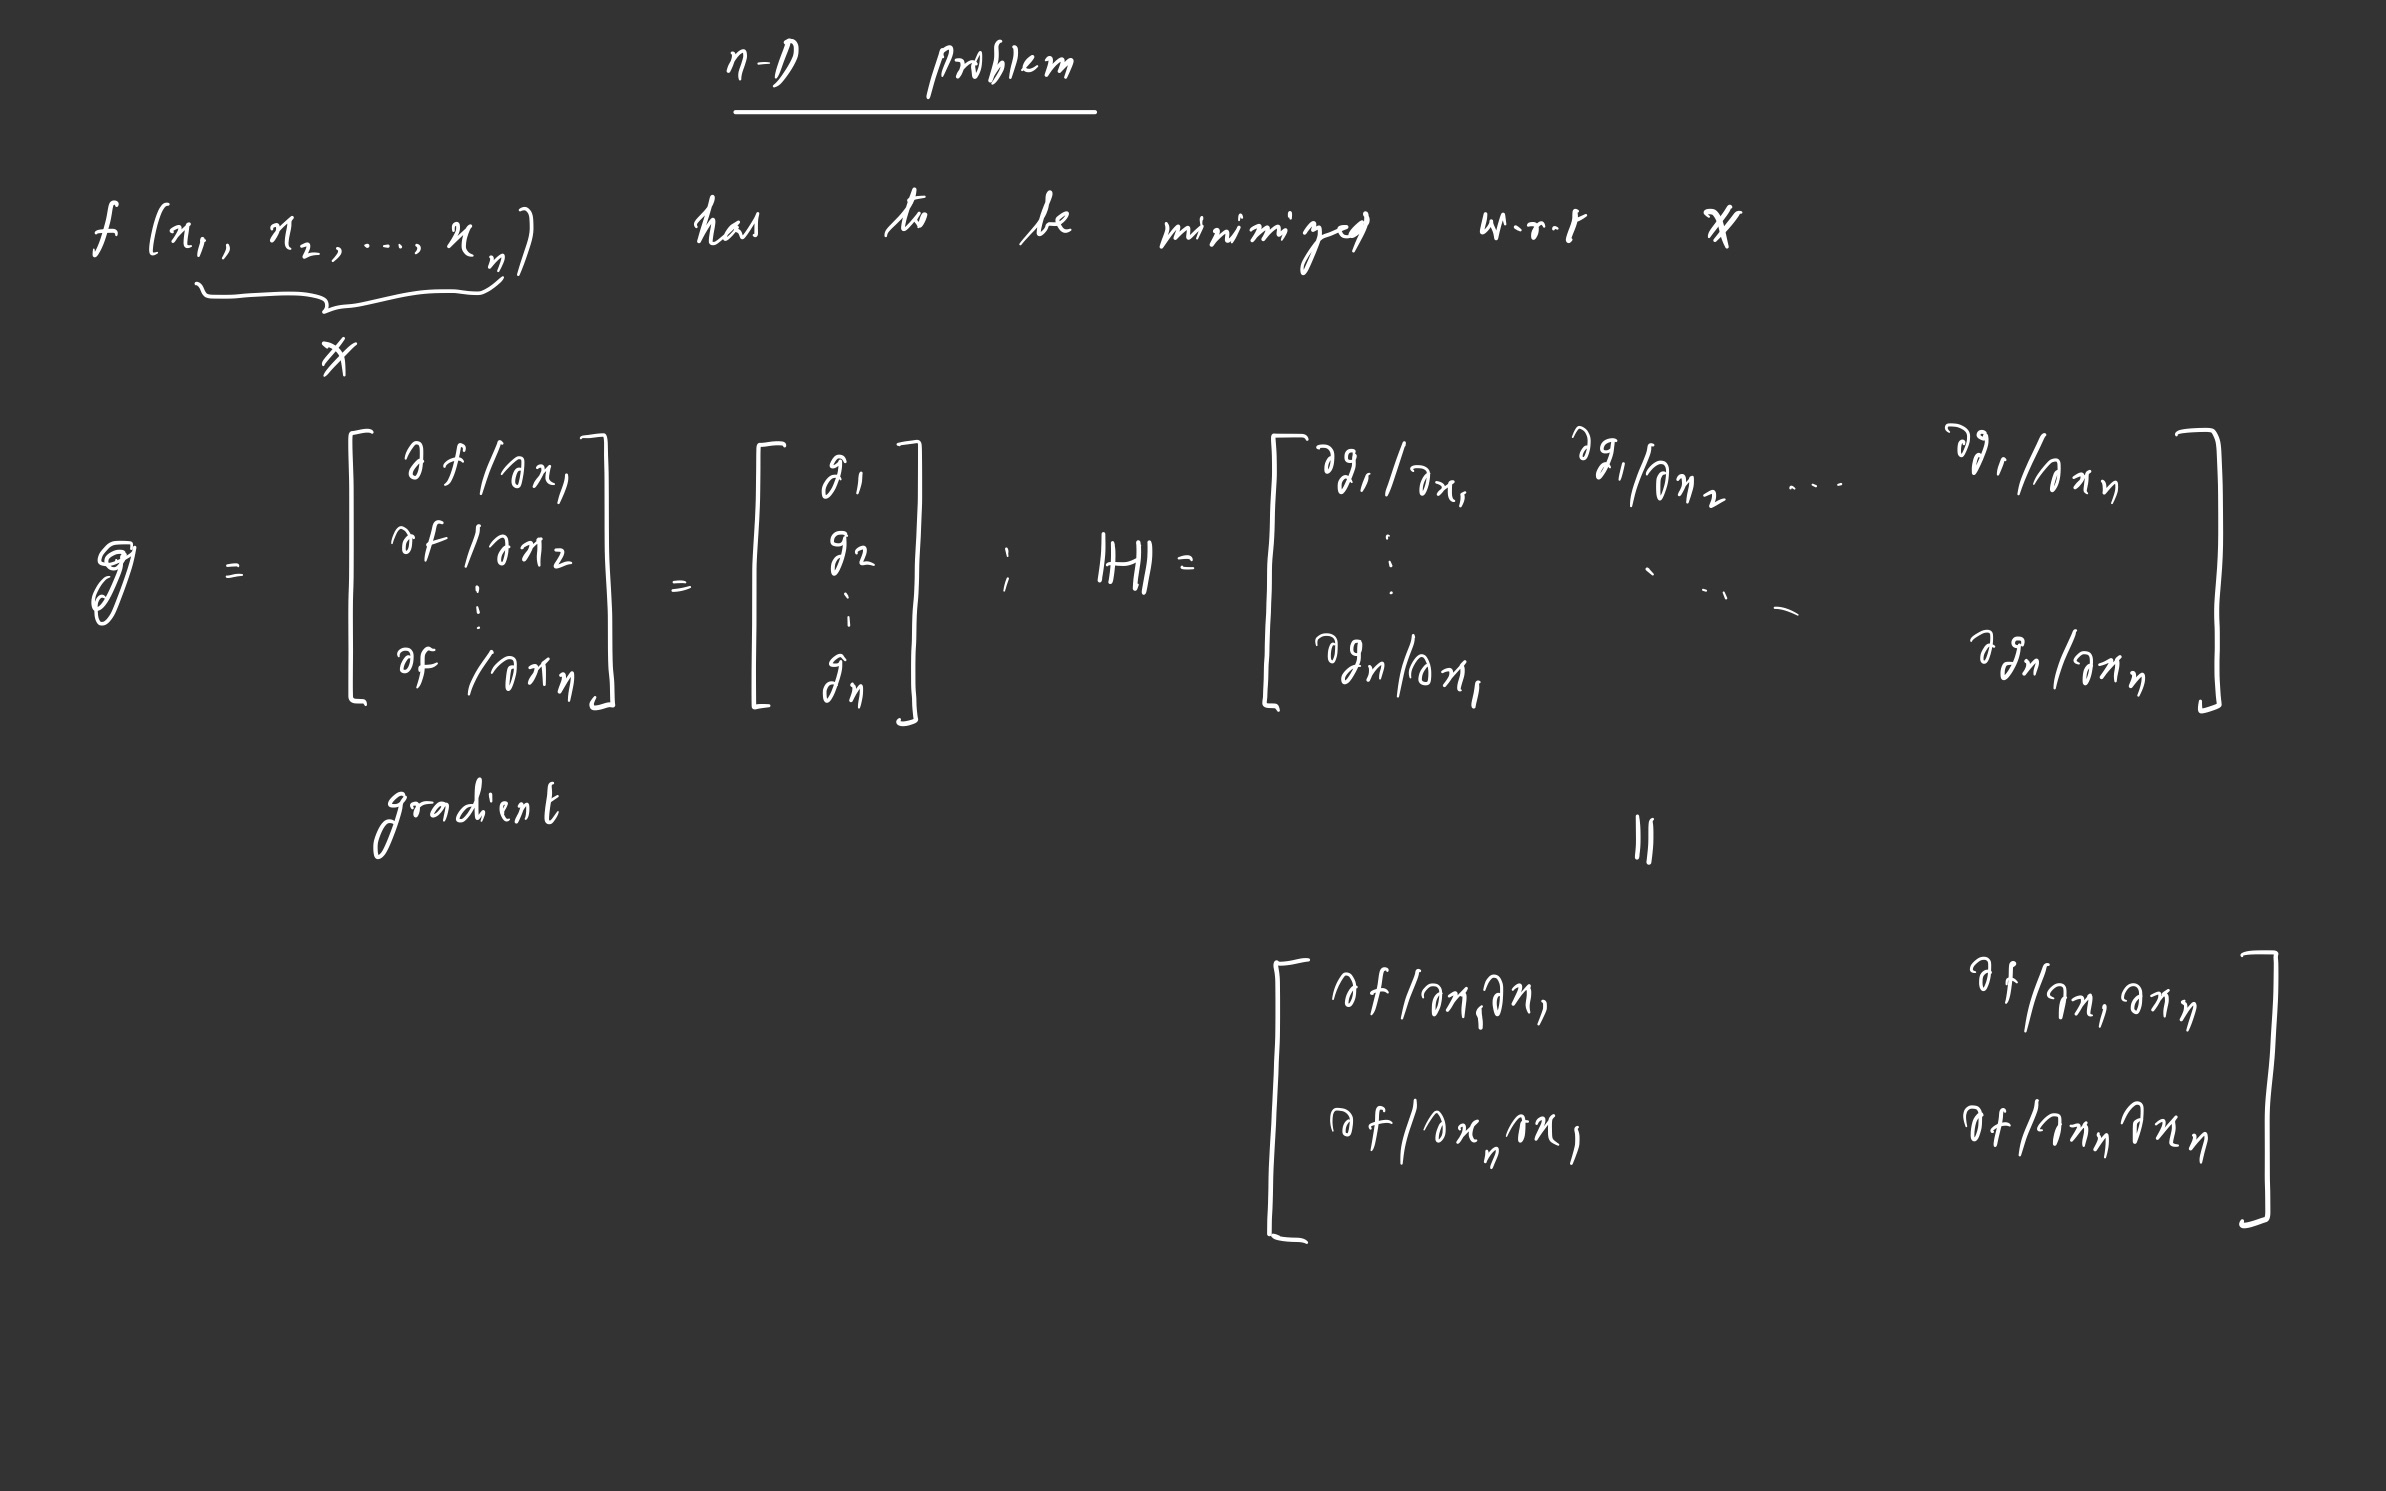 n-D problem
f (x₁, x₂, ..., xₙ) has to be minimized w.r.t 𝕩
𝕩
𝕘 = [ ∂f/∂x₁ ∂f/∂x₂ ⋮ ∂f/∂xₙ ] = [ g₁ g₂ ⋮ gₙ ] ; ℍ = [ ∂g₁/∂x₁ ∂g₁/∂x₂ ... ∂g₁/∂xₙ ⋮ ⋱ ∂gₙ/∂x₁ ∂gₙ/∂xₙ ]
gradient
||
[ ∂f/∂x₁∂x₁ ∂f/∂x₁∂xₙ
∂f/∂xₙ∂x₁ ∂f/∂xₙ∂xₙ ]